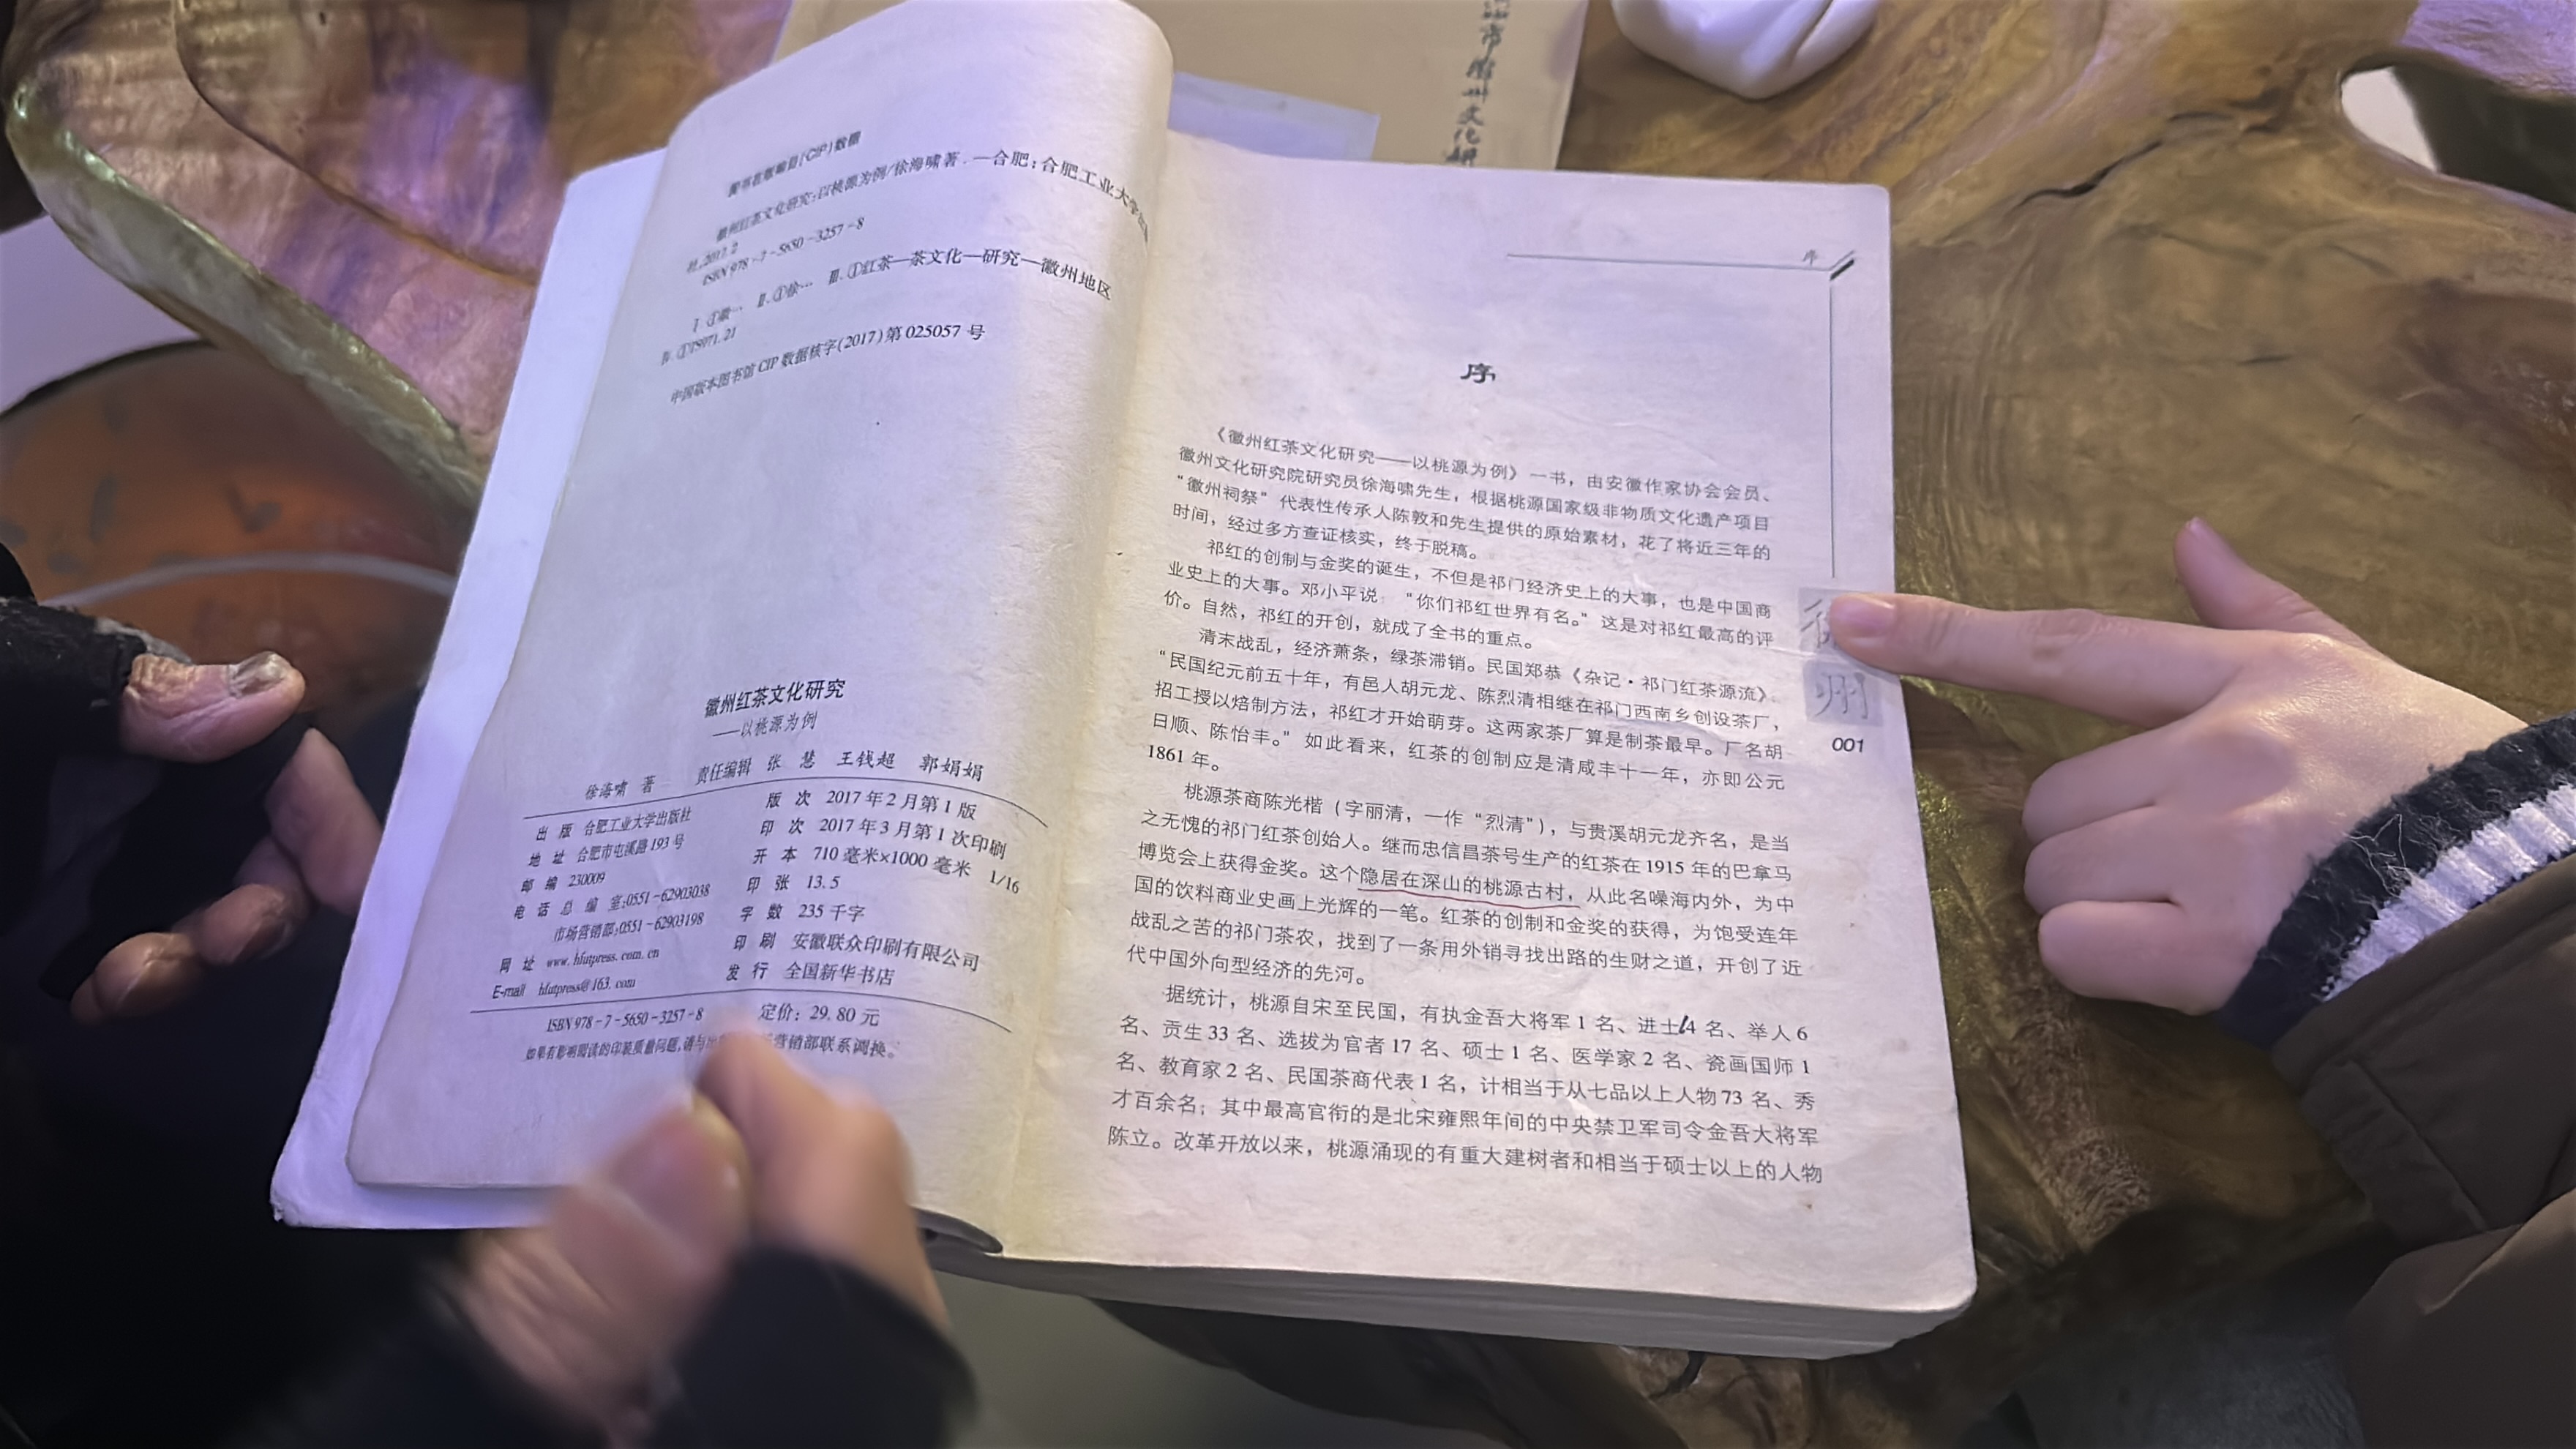 图书在版编目(CIP)数据
徽州红茶文化研究:以桃源为例/徐海啸著.—合肥:合肥工业大学出
社,2017.2
ISBN 978-7-5650-3257-8
Ⅰ.①徽… Ⅱ.①徐… Ⅲ.①红茶—茶文化—研究—徽州地区
Ⅳ.①TS971.21
中国版本图书馆 CIP 数据核字(2017)第 025057 号
徽州红茶文化研究
——以桃源为例
徐海啸 著 责任编辑 张 慧 王钱超 郭娟娟
出 版 合肥工业大学出版社
地 址 合肥市屯溪路 193 号
邮 编 230009
电 话 总 编 室:0551-62903038
市场营销部:0551-62903198
网 址 www.hfutpress.com.cn
E-mail hfutpress@163.com
版 次 2017 年 2 月第 1 版
印 次 2017 年 3 月第 1 次印刷
开 本 710 毫米×1000 毫米 1/16
印 张 13.5
字 数 235 千字
印 刷 安徽联众印刷有限公司
发 行 全国新华书店
ISBN 978-7-5650-3257-8 定价:29.80 元
如果有影响阅读的印装质量问题,请与 营销部联系调换。
序
序
《徽州红茶文化研究——以桃源为例》一书，由安徽作家协会会员、
徽州文化研究院研究员徐海啸先生，根据桃源国家级非物质文化遗产项目
“徽州祠祭”代表性传承人陈敦和先生提供的原始素材，花了将近三年的
时间，经过多方查证核实，终于脱稿。
祁红的创制与金奖的诞生，不但是祁门经济史上的大事，也是中国商
业史上的大事。邓小平说 “你们祁红世界有名。”这是对祁红最高的评
价。自然，祁红的开创，就成了全书的重点。
清末战乱，经济萧条，绿茶滞销。民国郑恭《杂记·祁门红茶源流》
“民国纪元前五十年，有邑人胡元龙、陈烈清相继在祁门西南乡创设茶厂，
招工授以焙制方法，祁红才开始萌芽。这两家茶厂算是制茶最早。厂名胡
日顺、陈怡丰。”如此看来，红茶的创制应是清咸丰十一年，亦即公元
1861 年。
桃源茶商陈光楷（字丽清，一作“烈清”），与贵溪胡元龙齐名，是当
之无愧的祁门红茶创始人。继而忠信昌茶号生产的红茶在 1915 年的巴拿马
博览会上获得金奖。这个隐居在深山的桃源古村，从此名噪海内外，为中
国的饮料商业史画上光辉的一笔。红茶的创制和金奖的获得，为饱受连年
战乱之苦的祁门茶农，找到了一条用外销寻找出路的生财之道，开创了近
代中国外向型经济的先河。
据统计，桃源自宋至民国，有执金吾大将军 1 名、进士14 名、举人 6
名、贡生 33 名、选拔为官者 17 名、硕士 1 名、医学家 2 名、瓷画国师 1
名、教育家 2 名、民国茶商代表 1 名，计相当于从七品以上人物 73 名、秀
才百余名；其中最高官衔的是北宋雍熙年间的中央禁卫军司令金吾大将军
陈立。改革开放以来，桃源涌现的有重大建树者和相当于硕士以上的人物
州
001
市徽州文化研